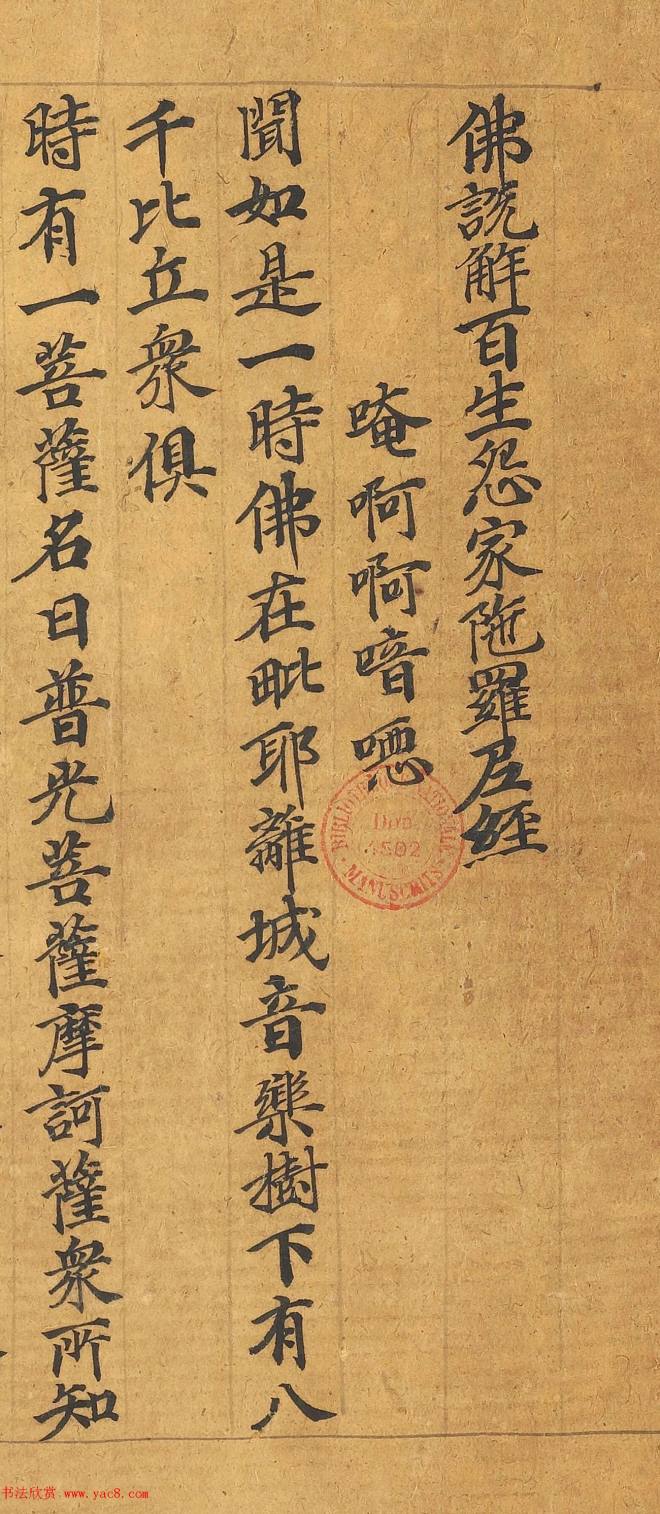 佛説解百生怨家陁羅尼經
唵啊啊暗𠺁
聞如是一時佛在毗耶離城音樂樹下有八
千比丘衆俱
時有一菩薩名曰普光菩薩摩訶薩衆所知
BIBLIOTHEQUE NATIONALE
Don
4502
MANUSCRITS
书法欣赏 www.yac8.com